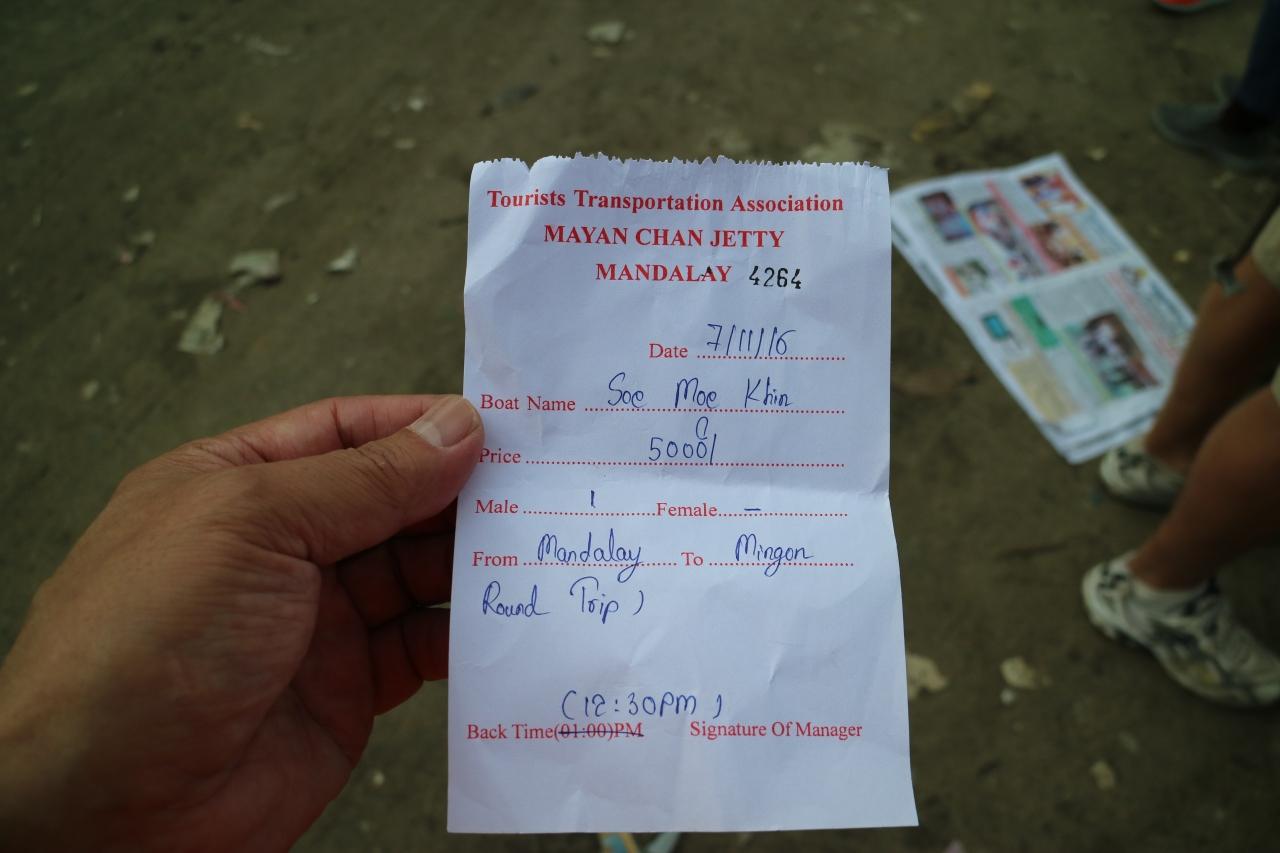 Tourists Transportation Association
MAYAN CHAN JETTY
MANDALAY 4264
Date 7/11/16
Boat Name Soe Moe Khin
Price 5000/
Male 1 Female –
From Mandalay To Mingon
Round Trip )
(12:30PM )
Back Time(01:00)PM Signature Of Manager